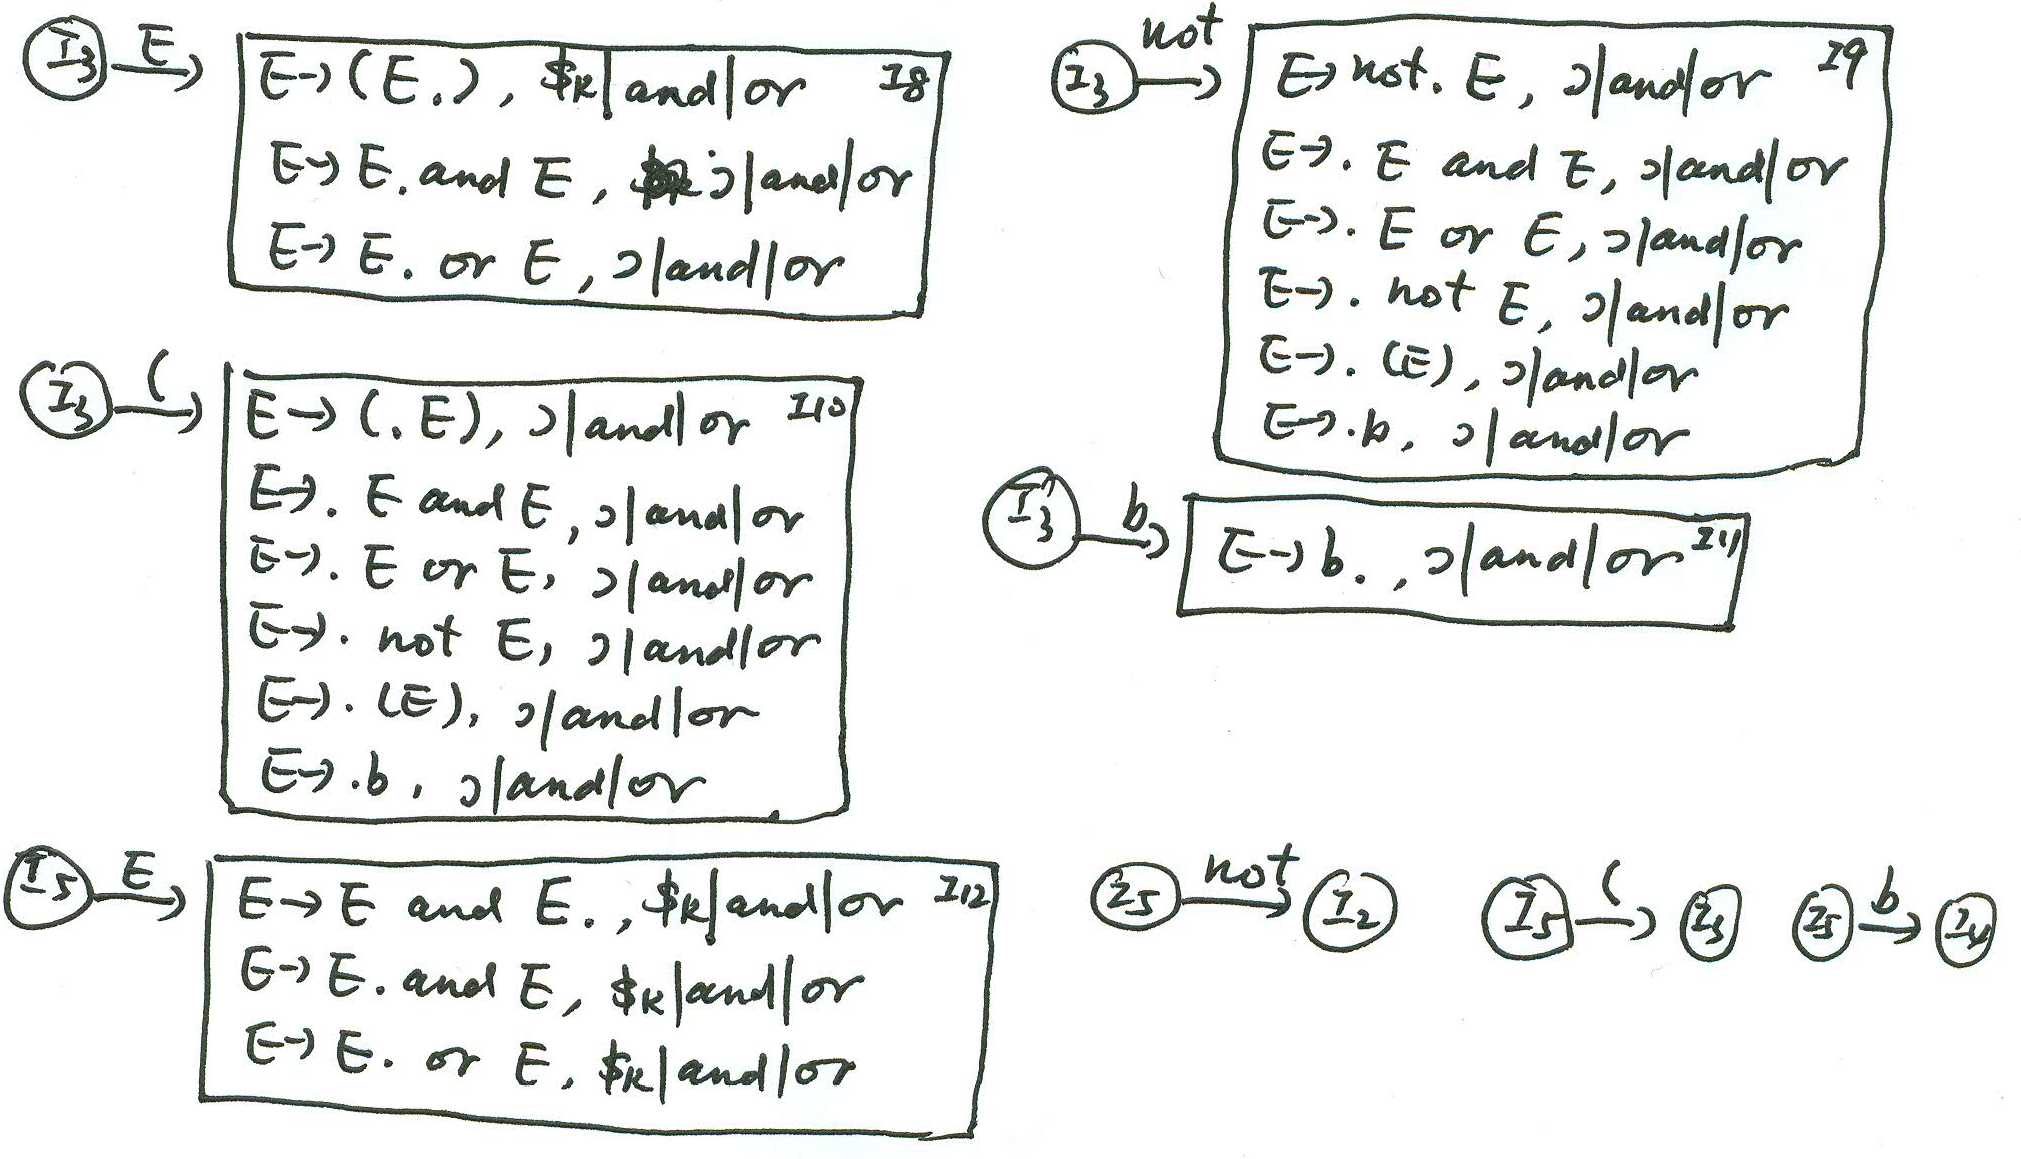 I3 E
E→(E.), $R|and|or I8
E→E. and E, )|and|or
E→E. or E, )|and|or
I3 not
E→not. E, )|and|or I9
E→. E and E, )|and|or
E→. E or E, )|and|or
E→. not E, )|and|or
E→. (E), )|and|or
E→.b, )|and|or
I3 (
E→(.E), )|and|or I10
E→. E and E, )|and|or
E→. E or E, )|and|or
E→. not E, )|and|or
E→. (E), )|and|or
E→.b, )|and|or
I3 b
E→b., )|and|or I11
I5 E
E→E and E., $R|and|or I12
E→E. and E, $R|and|or
E→E. or E, $R|and|or
I5 not I2
I5 ( I3
I5 b I4